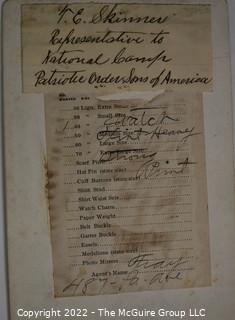 T. E. Skinner
Representative to
National Camp
Patriotic Order Sons of America
Extra
Small Size
Watch
Heavy
Large Size
Strong
Scarf Pins
Print
Hat Pin (state size)
Cuff Buttons (state size)
Shirt Stud
Shirt Waist Sets
Watch Charm
Paper Weight
Belt Buckle
Garter Buckle
Easels
Medallions (state size)
Photo Mirrors
Agent's Name
Copyright 2022 - The McGuire Group LLC